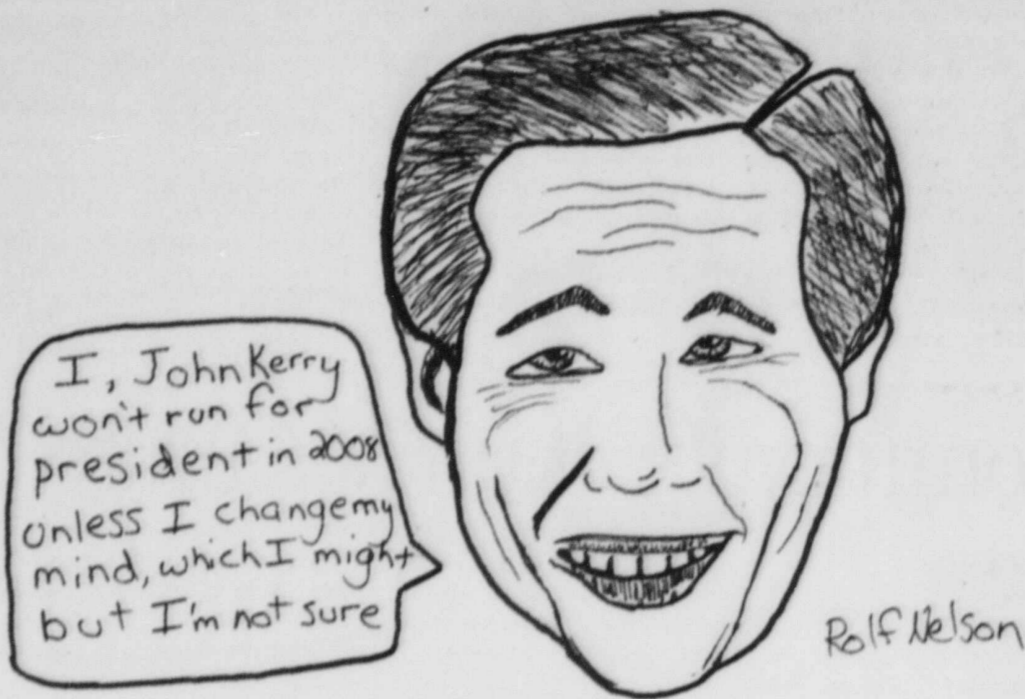 I, John Kerry
won't run for
president in 2008
unless I change my
mind, which I might
but I'm not sure
Rolf Nelson